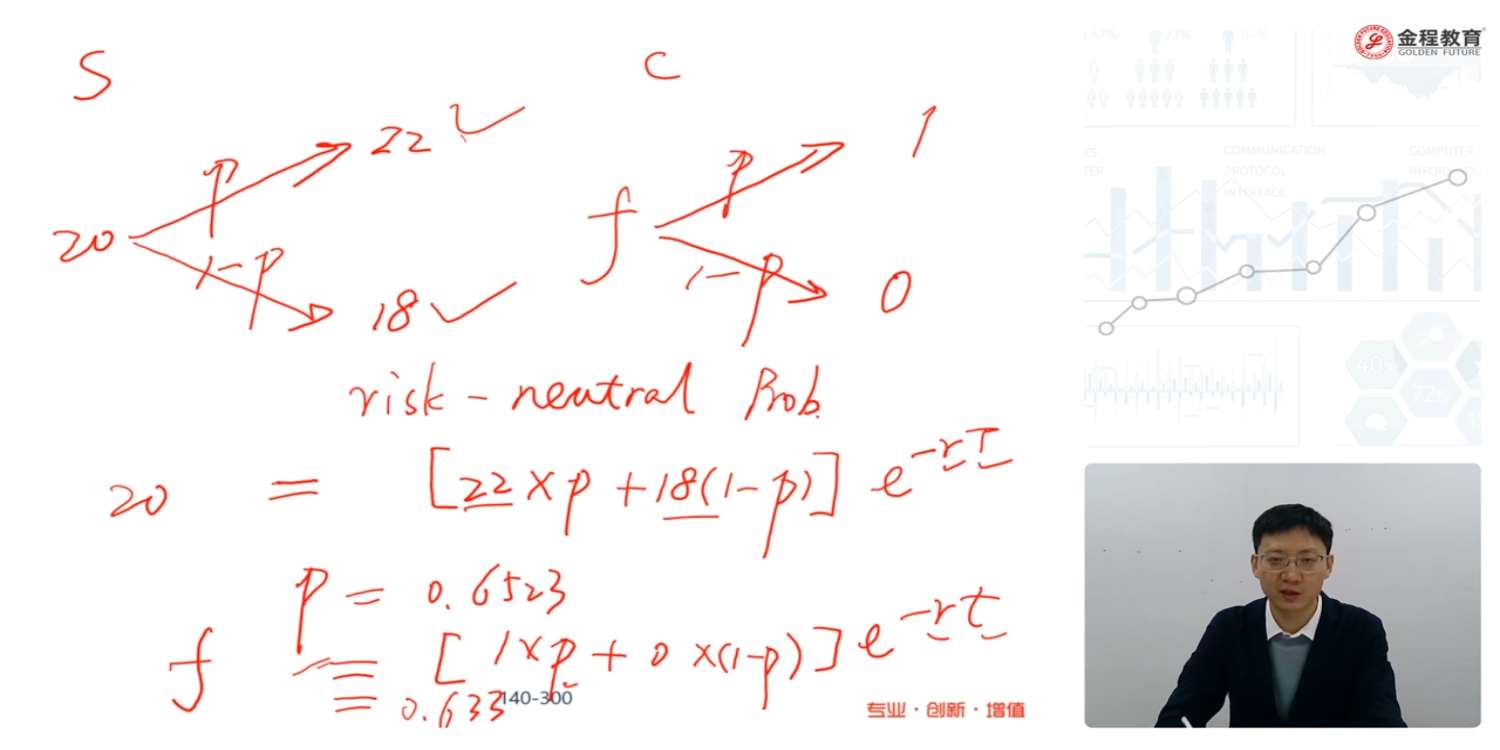 S C
金程教育
GOLDEN FUTURE
22
1
p
p
20
f
1-p
1-p
18
0
COMMUNICATION
PROTOCOL
INTERFACE
COMPUTER
risk-neutral Prob.
40%
72%
20 = [22×p+18(1-p)]e^-rT
p = 0.6523
f = [1×p+0×(1-p)]e^-rt
= 0.633
140-300
专业·创新·增值